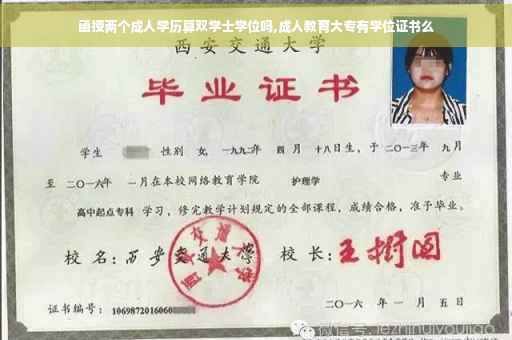 函授两个成人学历算双学士学位吗,成人教育大专有学位证书么
西安交通大学
毕业证书
学生 性别 女, 一九九二年 四月 十八日生，于 二〇一三年 九月
至 二〇一六年 一月在本校网络教育学院 护理学 专业
高中起点专科 学习，修完教学计划规定的全部课程，成绩合格，准予毕业。
校名: 西安交通大学 校长: 王树国
证书编号: 1069872016060
二〇一六年一月五日
微信号: jezhinuiyoujiao